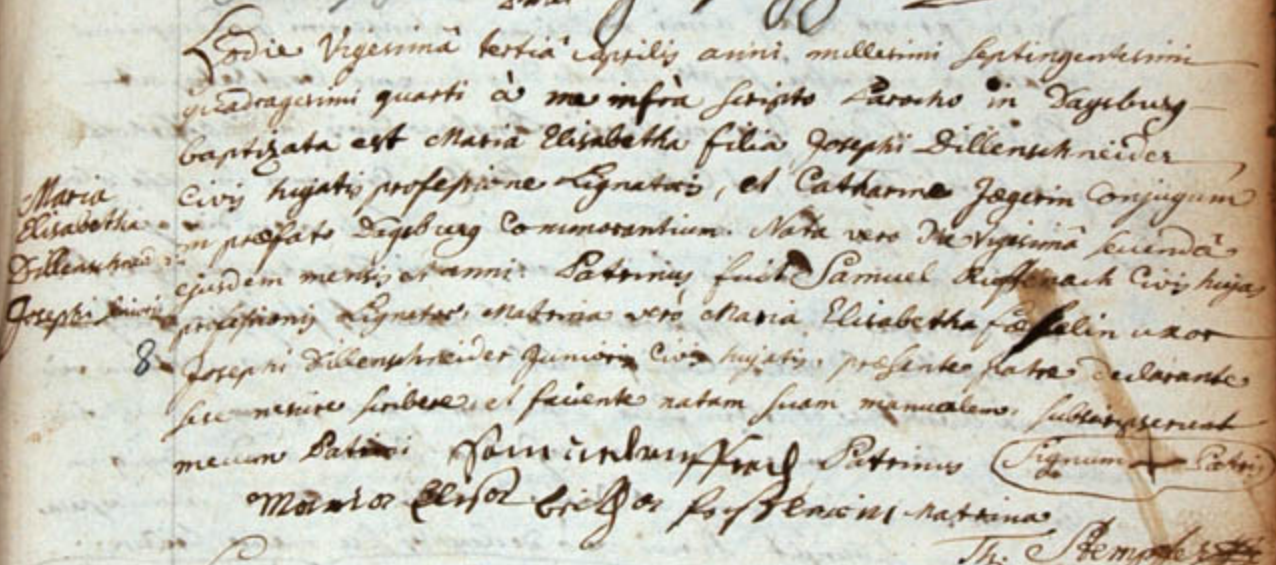 Hodie Vigesimâ tertiâ aprilis anni millesimi Septingentesimi
quadragesimi quarti à me infrà scripto Parocho in Dagsburg
baptizata est Maria Elisabetha filia Josephi Dillenschneider
Civis hujatis professione Lignatoris, et Catharinæ Jægerin Conjugum
in præfato Dagsburg Commorantium. Nata vero die Vigesimâ secundâ
ejusdem mensis et anni. Patrinus fuit Samuel Ruffenach Civis hujas
professionis Lignator, Matrina verò Maria Elisabetha uxor
Josephi Dillenschneider Junioris Civis hujatis, præsente patre declarante
se nescire scribere, et faciente notam suam manualem, subscripserunt
mecum Patrini Patrinus Signum + Patris
Maria Matrina
Stempfler
Maria
Elisabetha
Dillenschneider
Josephi junioris
8